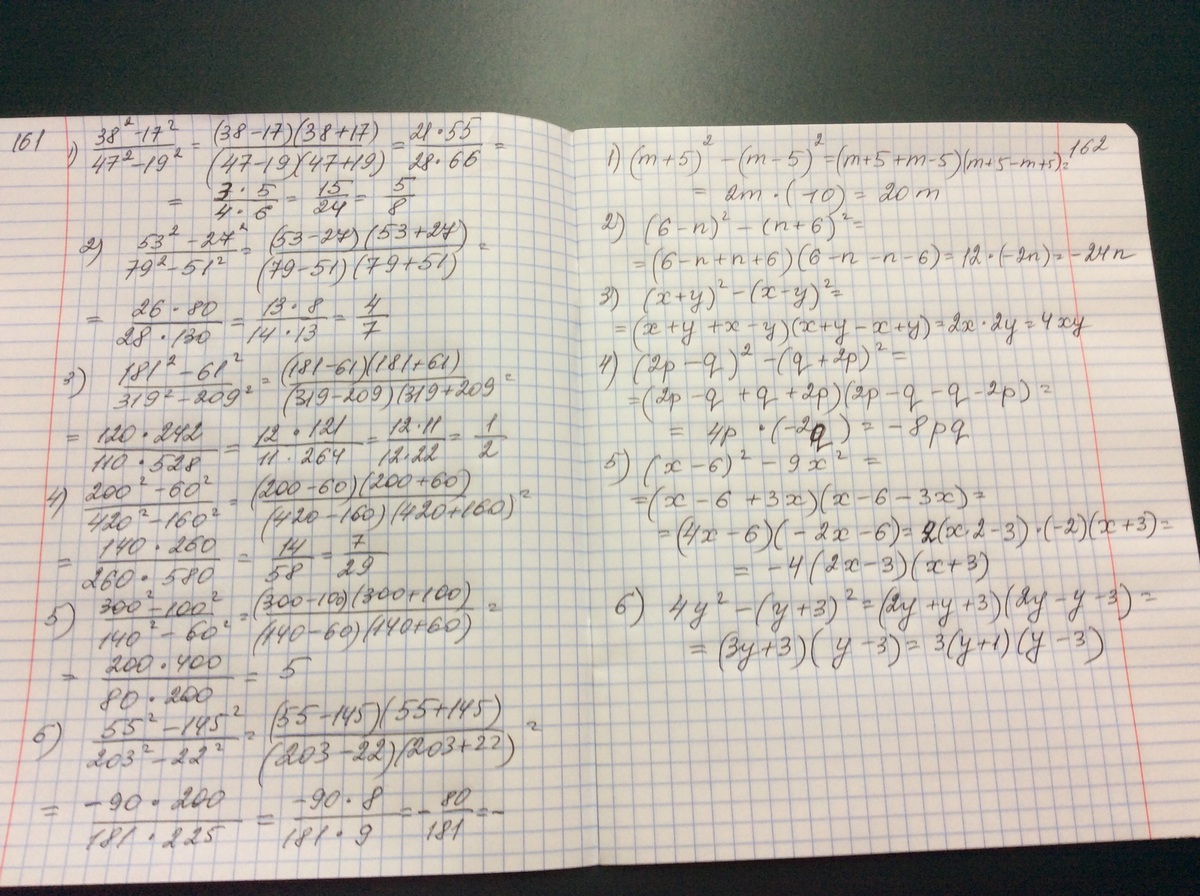 161
1) (38² -17²)/(47² -19²) = ((38-17)(38+17))/((47-19)(47+19)) = (21·55)/(28·66) =
= (3·5)/(4·6) = 15/24 = 5/8
2) (53² -27²)/(79² -51²) = ((53-27)(53+27))/((79-51)(79+51)) =
= (26·80)/(28·130) = (13·8)/(14·13) = 4/7
3) (181² -61²)/(319² -209²) = ((181-61)(181+61))/((319-209)(319+209 =
= (120·242)/(110·528) = (12·121)/(11·264) = (12·11)/(12·22) = 1/2
4) (200² -60²)/(420² -160²) = ((200-60)(200+60))/((420-160)(420+160)) =
= (140·260)/(260·580) = 14/58 = 7/29
5) (300² -100²)/(140² -60²) = ((300-100)(300+100))/((140-60)(140+60)) =
= (200·400)/(80·200) = 5
6) (55² -145²)/(203² -22²) = ((55-145)(55+145))/((203-22)(203+22)) =
= (-90·200)/(181·225) = (-90·8)/(181·9) = - 80/181 = -
162
1) (m+5)² -(m-5)² = (m+5+m-5)(m+5-m+5)=
= 2m·(10) = 20m
2) (6-n)² -(n+6)² =
=(6-n+n+6)(6-n-n-6)=12·(-2n)=-24n
3) (x+y)² -(x-y)² =
=(x+y+x-y)(x+y-x+y)=2x·2y=4xy
4) (2p-q)² -(q+2p)² =
=(2p-q+q+2p)(2p-q-q-2p)=
= 4p·(-2q) = -8pq
5) (x-6)² - 9x² =
=(x-6+3x)(x-6-3x)=
=(4x-6)(-2x-6)= 2(x·2-3)·(-2)(x+3)=
= -4(2x-3)(x+3)
6) 4y² -(y+3)² =(2y+y+3)(2y-y-3)=
= (3y+3)(y-3)= 3(y+1)(y-3)